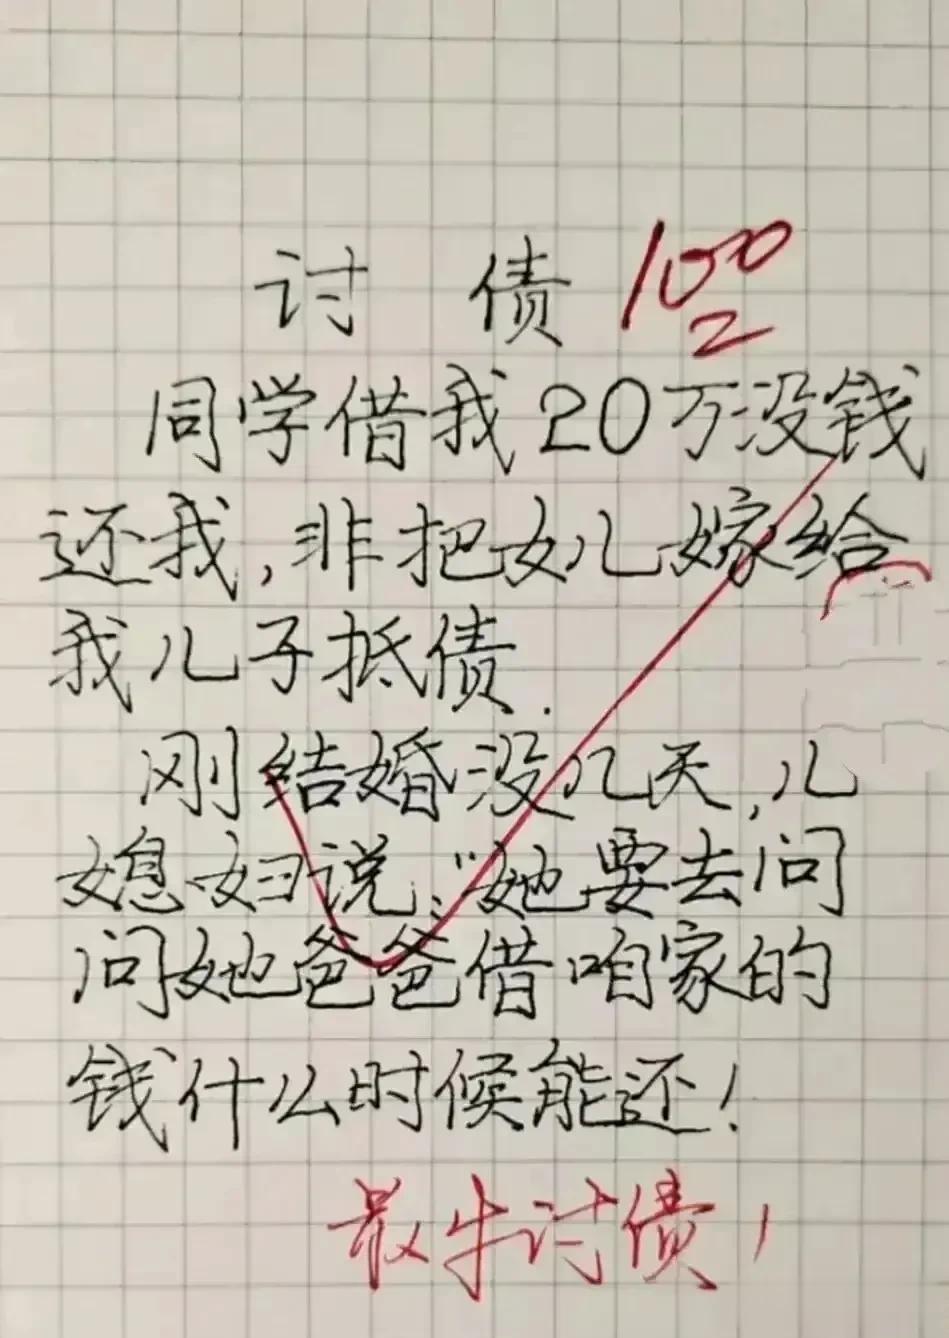 讨 债 100
2
同学借我20万没钱
还我,非把女儿嫁给
我儿子抵债.
刚结婚没几天,儿
媳妇说:“她要去问
问她爸爸借咱家的
钱什么时候能还!
最牛讨债!